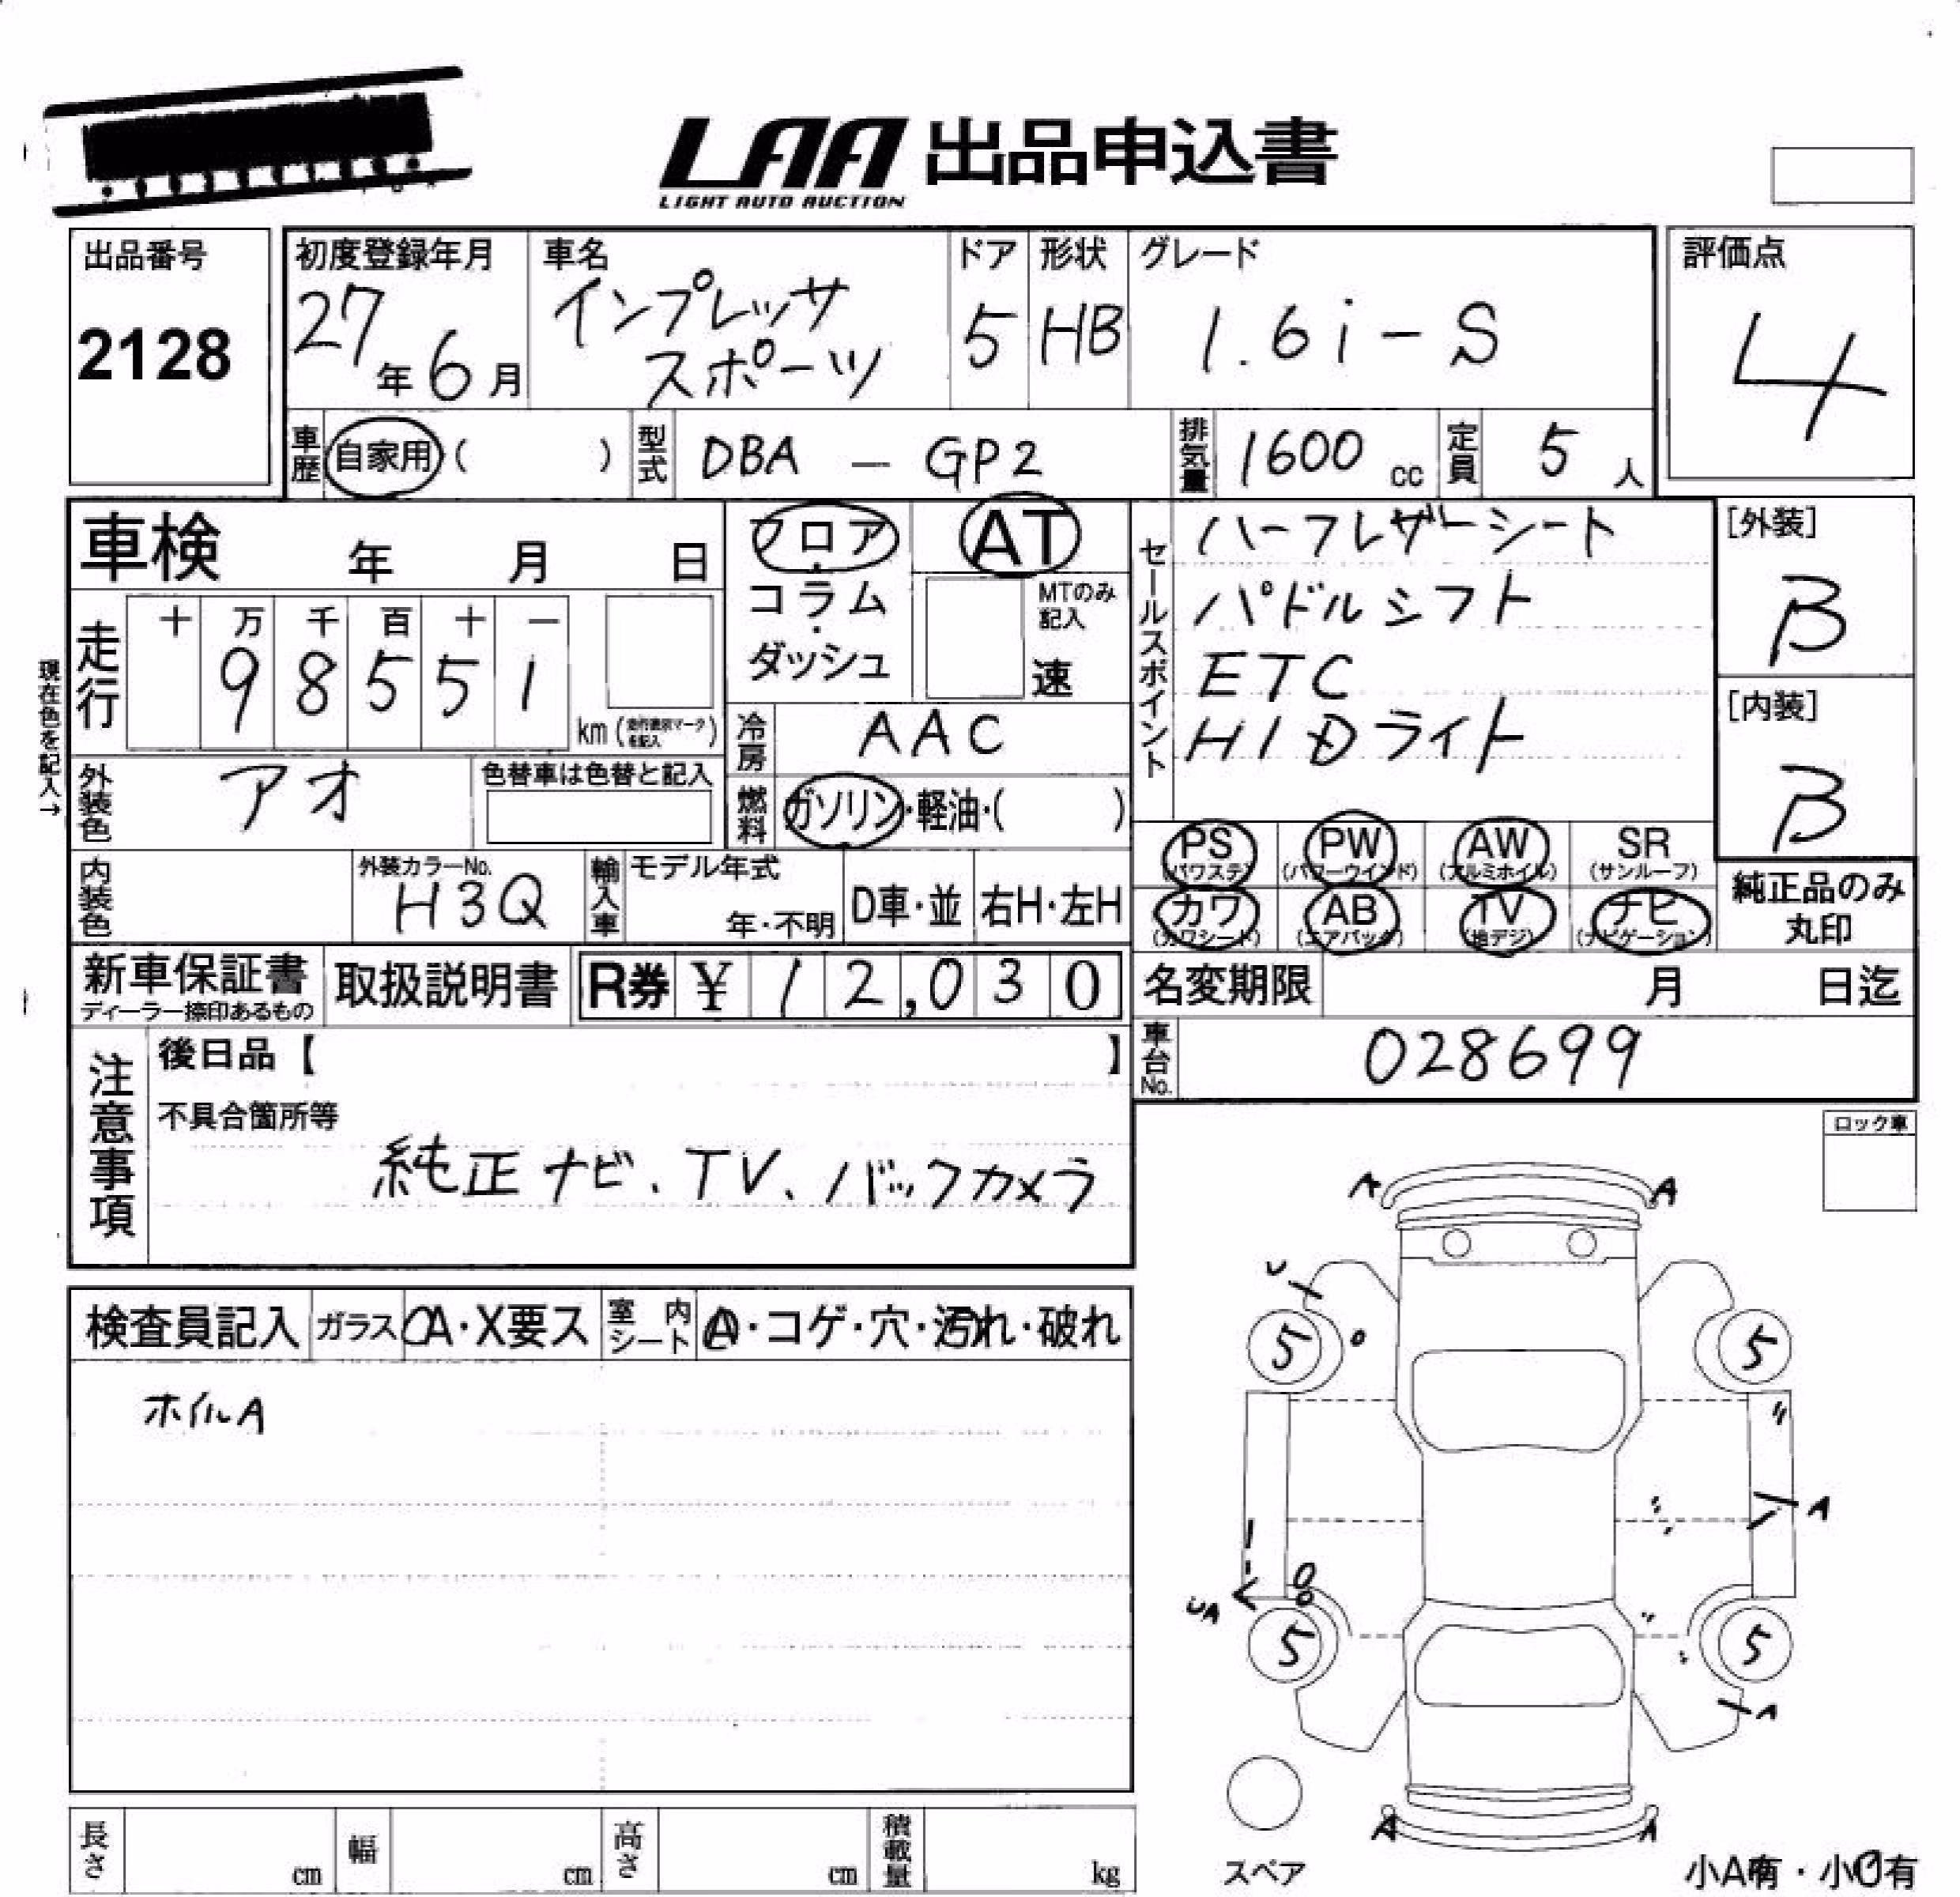 LAA 出品申込書
LIGHT AUTO AUCTION
出品番号
2128
初度登録年月
27年6月
車名
インプレッサ
スポーツ
ドア
5
形状
HB
グレード
1.6i-S
評価点
4
車歴
自家用( )
型式
DBA - GP2
排気量
1600cc
定員
5人
車検 年 月 日
フロア・
コラム・
ダッシュ
AT
MTのみ
記入
速
セールスポイント
ハーフレザーシート
パドルシフト
ETC
HIDライト
[外装]
B
[内装]
B
現在色を記入→
走行
十 万 千 百 十 一
9 8 5 5 1
km( )
冷房
AAC
外装色
アオ
色替車は色替と記入
燃料
ガソリン・軽油・( )
PS
(パワステ)
PW
(パワーウインド)
AW
(アルミホイル)
SR
(サンルーフ)
カワ
(カワシート)
AB
(エアバック)
TV
(地デジ)
ナビ
(ナビゲーション)
純正品のみ
丸印
内装色
外装カラーNo.
H3Q
輸入車
モデル年式
年・不明
D車・並
右H・左H
新車保証書
ディーラー捺印あるもの
取扱説明書
R券 ¥12,030
名変期限 月 日迄
車台No.
028699
注意事項
後日品【 】
不具合箇所等
純正ナビ、TV、バックカメラ
ロック車
検査員記入
ガラス
A・X要ス
室内
シート
A・コゲ・穴・汚れ・破れ
ホイルA
A A
U
5 5
A
UA
5 5
A
A A
スペア
小A有・小U有
長さ cm
幅 cm
高さ cm
積載量 kg